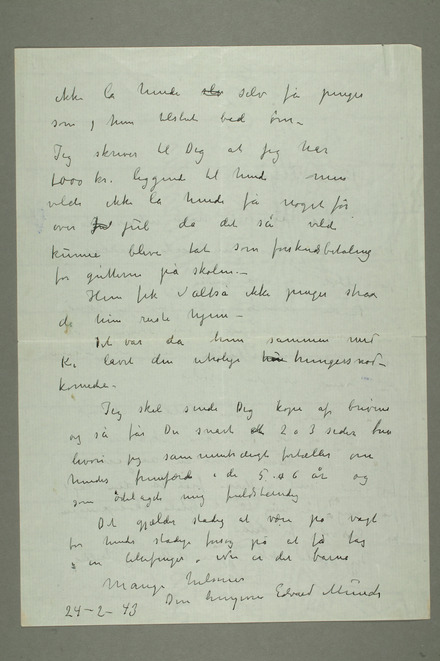 ikke la hende selv få penger
som hun tilslut bad om –
Jeg skriver til Dig at jeg har
1000 kr. liggende til hende men
vilde ikke la hende få noget før
over jul da det så vild
kunne blive tat som forskudsbetaling
for gutterne på skolen. –
Hun fik altså ikke penger strax
da hun reiste hjem –
Det var da hun sammen med
K. lavet den uhelige hungersnød-
komedie –
Jeg skal sende Dig kopi af brevene
og så får Du snart 2 a 3 sider brev
hvori jeg fortæller om
hendes i de 5 6 år og
som ødelagde mig fuldstendig
Det gjælder stadig at være på vagt
for hendes stadige forsøg på at få tag
i en Nu er det barne
Mange hilsener
Din hengivne Edvard Munch
24-2-43